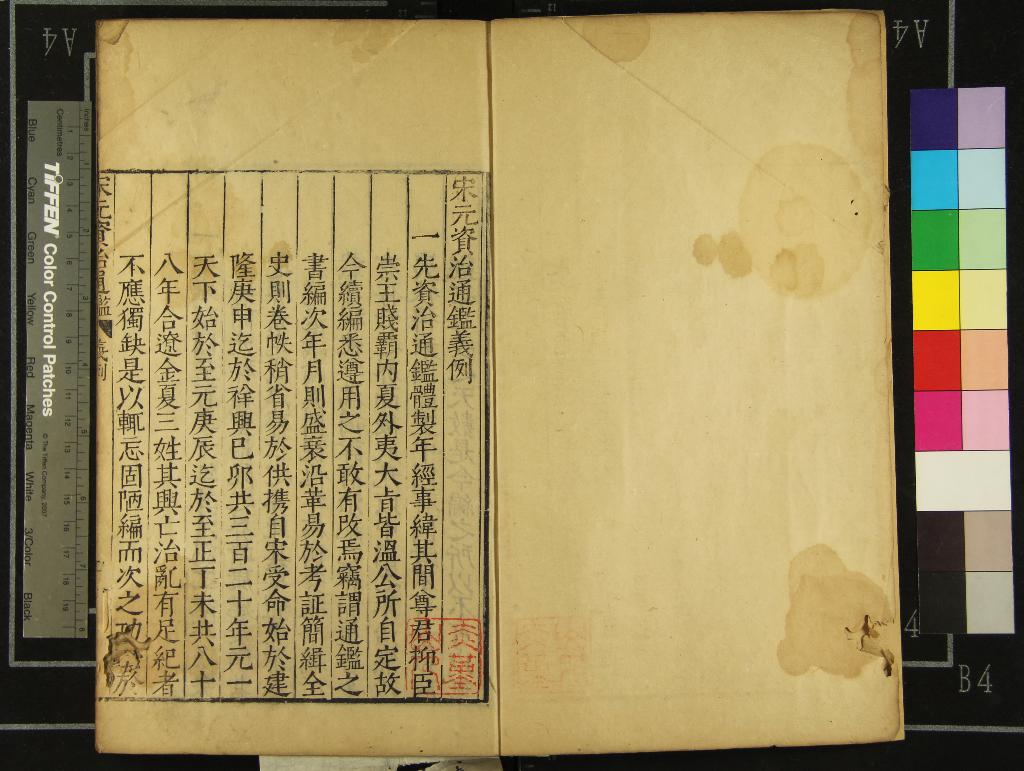 宋元資治通鑑義例
一先資治通鑑體製年經事緯其間尊君抑臣
崇王賤霸內夏外夷大㫖皆溫公所自定故
今續編悉遵用之不敢有改焉竊謂通鑑之
書編次年月則盛衰沿革易於考証簡緝全
史則卷帙稍省易於供攜自宋受命始於建
隆庚申迄於祥興己卯共三百二十年元一
天下始於至元庚辰迄於至正丁未共八十
八年合遼金夏三姓其興亡治亂有足紀者
不應獨缺是以輒忘固陋編而次之功
宋元資治通鑑 義例
TIFFEN Color Control Patches
© The Tiffen Company, 2007
Centimetres
Inches
Blue Cyan Green Yellow Red Magenta White 3/Color Black
A4
A4
B4